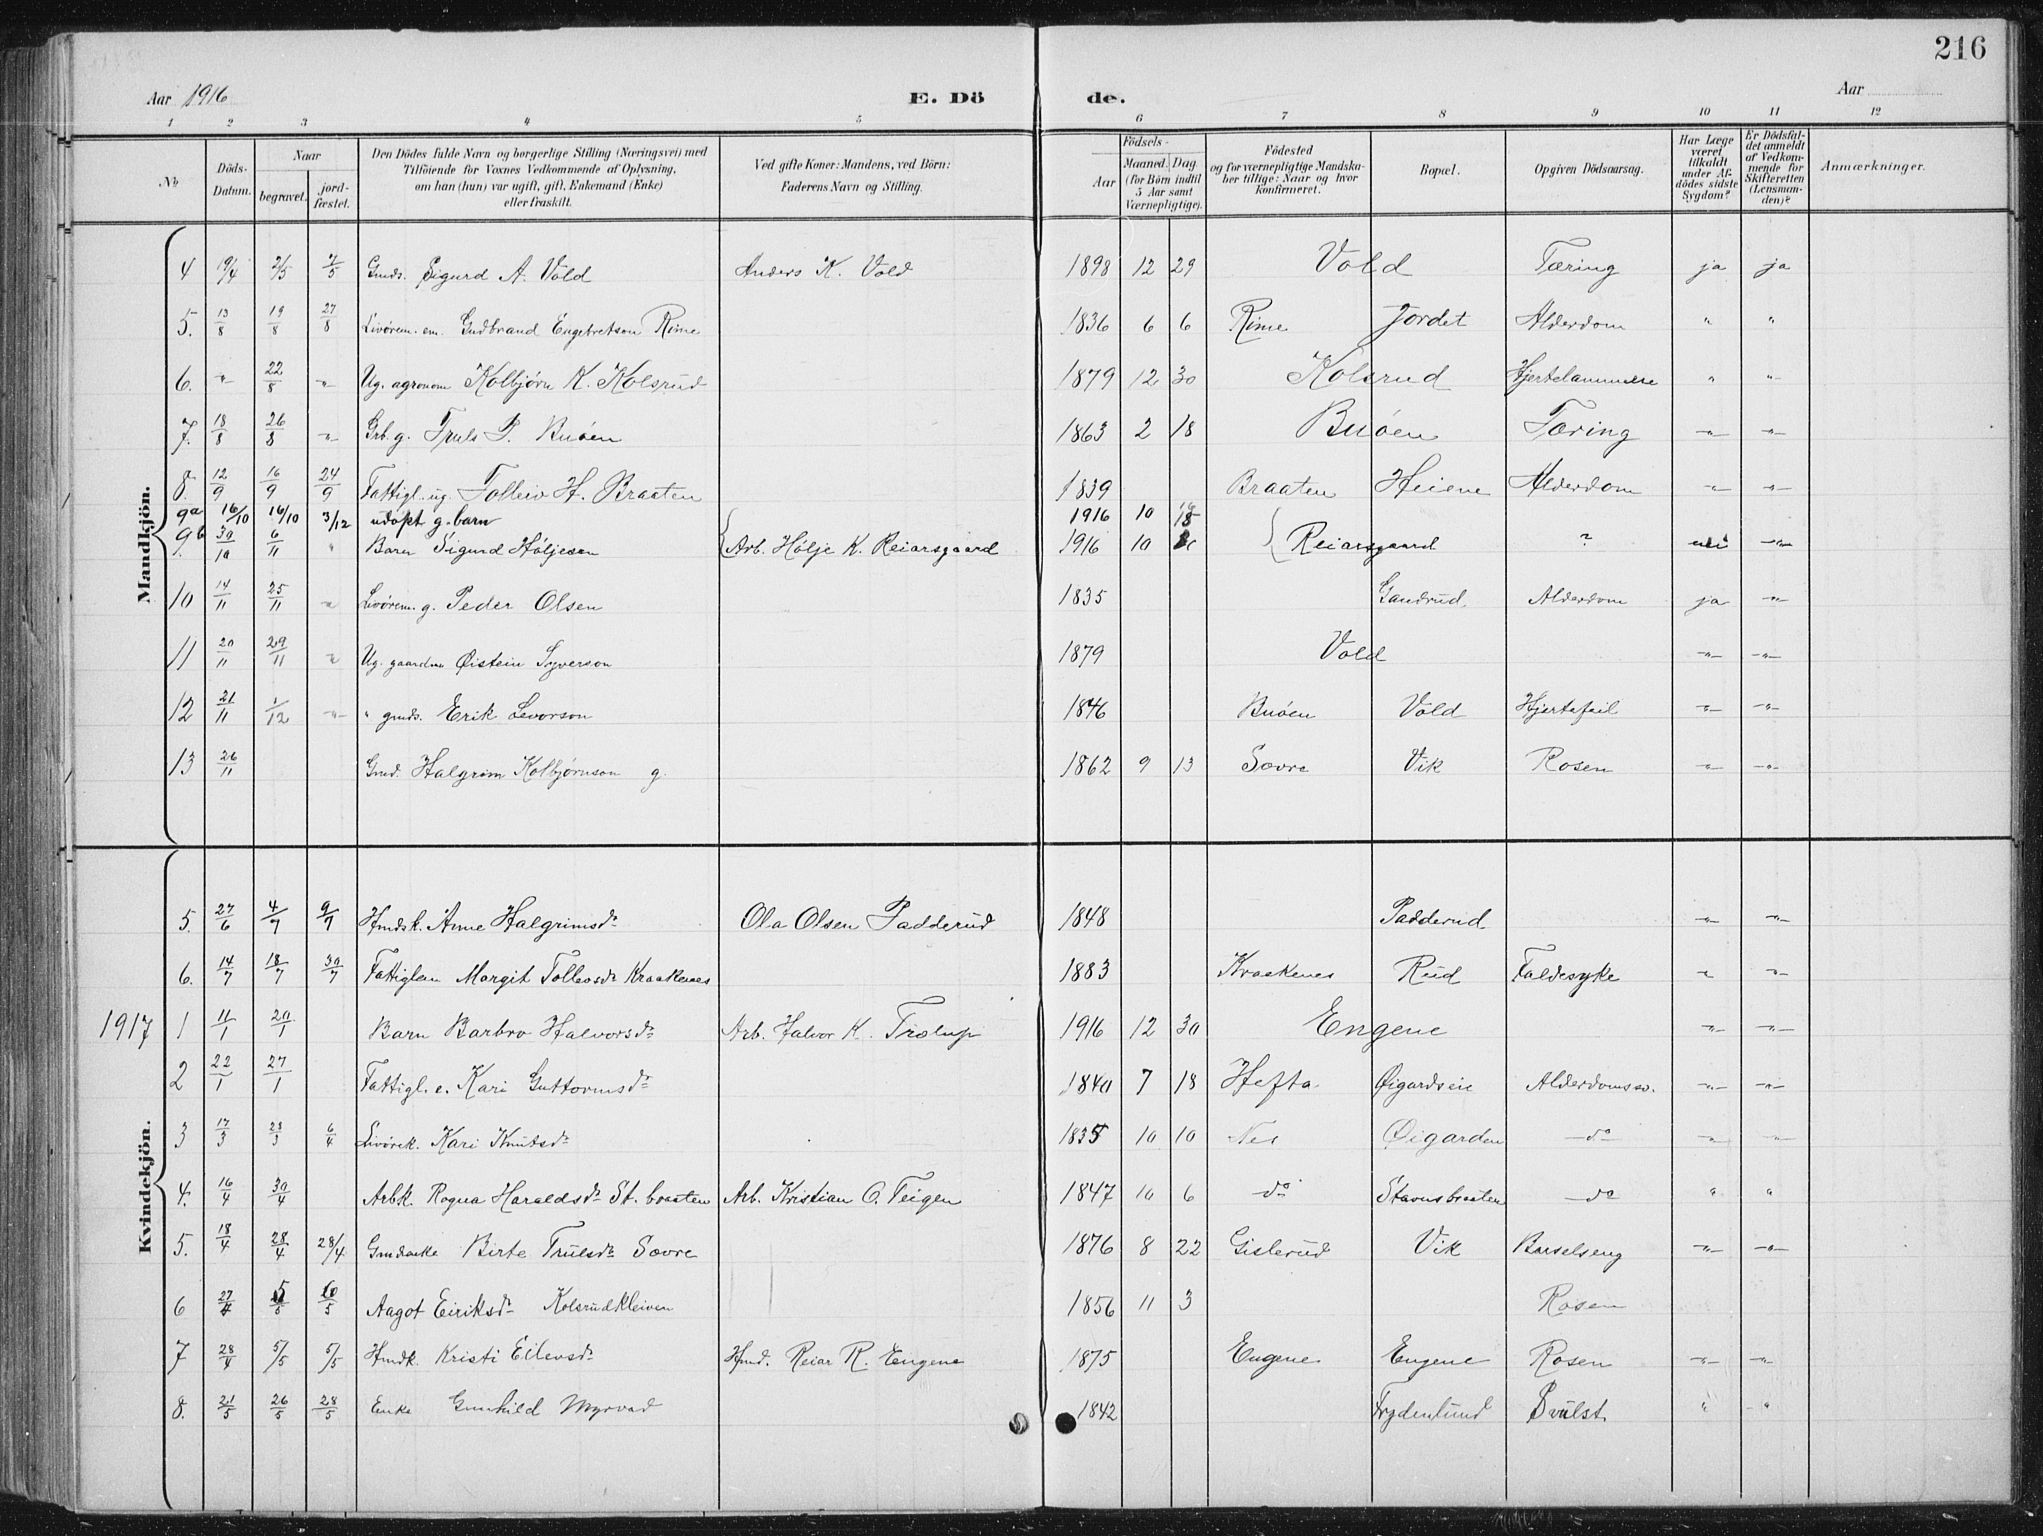 216
Aar 1916 E. Dö de. Aar
1 2 3 4 5 6 7 8 9 10 11 12
No
Döds-Datum.
Naar
begravet.
jord-fæstet.
Den Dödes fulde Navn og borgerlige Stilling (Næringsvei) med Tilföiende for Voxnes Vedkommende af Oplysning, om han (hun) var ugift, gift, Enkemand (Enke) eller fraskilt.
Ved gifte Koner: Mandens, ved Börn: Faderens Navn og Stilling.
Födsels-
Aar
Maaned. Dag
(for Börn indtil 5 Aar samt Værnepligtige).
Födested og for værnepligtige Mandskaber tillige: Naar og hvor Konfirmeret.
Bopæl.
Opgiven Dödsaarsag.
Har Læge været tilkaldt under Afdödes sidste Sygdom?
Er Dödsfaldet anmeldt af Vedkommende for Skifteretten (Lensmanden)?
Anmærkninger.
Mandkjön.
4 19/4 2/5 7/5 Gmds. Sigurd A. Vold Anders K. Vold 1898 12 29 Vold Tæring ja ja
5. 13/8 19/8 27/8 Livørem. em. Gudbrand Engebretson Rime 1836 6 6 Rime Jordet Alderdom " "
6. " 22/8 " Ug. agronom Kolbjørn K. Kolsrud 1879 12 30 Kolsrud Hjertelammelse " "
7. 18/8 26/8 " Grb. g. Truls P. Buøen 1863 2 18 Buøen Tæring " "
8. 12/9 16/9 24/9 Fattigl. ug. Tolleiv H. Braaten 1839 Braaten Heiene Alderdom " "
9a 16/10 16/10 3/12 udøpt g. barn 1916 10
9b 30/10 6/11 " Barn Sigurd Høljesen Arb. Hølje K. Reiarsgaard 1916 10 Reiarsgaard ? nei "
10 14/11 25/11 " Livørem. g. Peder Olsen 1835 Gandrud Alderdom ja "
11 20/11 29/11 " Ug. gaardm Øistein Syverson 1879 Vold " "
12 21/11 1/12 " " gmds. Erik Levorson 1846 Buøen Vold Hjertefeil " "
13 26/11 Gmd. Halgrim Kolbjørnson g. 1862 9 13 Sovre Vik Rosen " "
Kvindekjön.
5. 27/6 4/7 9/7 Hmdsk. Anne Halgrimsdr Ola Olsen Padderud 1848 Padderud " "
6. 14/7 18/7 30/7 Fattiglem Margit Tollevsdr Kraakenes 1883 Kraakenes Rud Faldesyke " "
1917 1 11/1 20/1 Barn Barbro Halvorsdr Arb. Halvor K. Trolup 1916 12 30 Engene " "
2 22/1 27/1 Fattigl. e. Kari Guttormsdr 1840 7 18 Hefta Øigardseie Alderdomssv. " "
3 17/3 23/3 6/4 Livørek. Kari Knutsdr 1835 10 10 Nes Øigarden do " "
4. 16/4 30/4 Arbk. Rogna Haraldsdr St. braaten Arb. Kristian O. Teigen 1847 10 6 do Stavnsbraaten do " "
5. 18/4 28/4 28/4 Gmdenke Birte Trulsdr Sovre 1876 8 22 Gislerud Vik Barselseng " "
6 27/4 5/5 6/5 Aagot Eiriksdr Kolsrudkleiven 1856 11 3 Rosen
7 28/4 5/5 5/5 Hmdk. Kristi Eilevsdr Hmd. Reiar R. Engene 1875 Engene Engene Rosen " "
8. 21/5 26/5 28/5 Enke Gunhild Myrvad 1842 Frydenlund Svulst " "